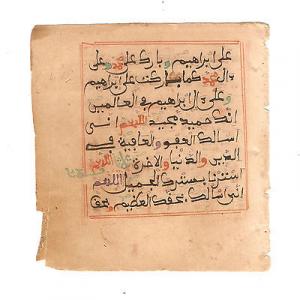 على ابراهيم وبارك على محمد وعلى
ءال محمد كما باركت على ابراهيم
وعلى ءال ابراهيم في العالمين
انك حميد مجيد اللهم اني
اسالك العفو والعافية في
الدين والدنيا والاخرة اللهم
استرنا بسترك الجميل اللهم
اني اسالك بحقك العظيم وبحق